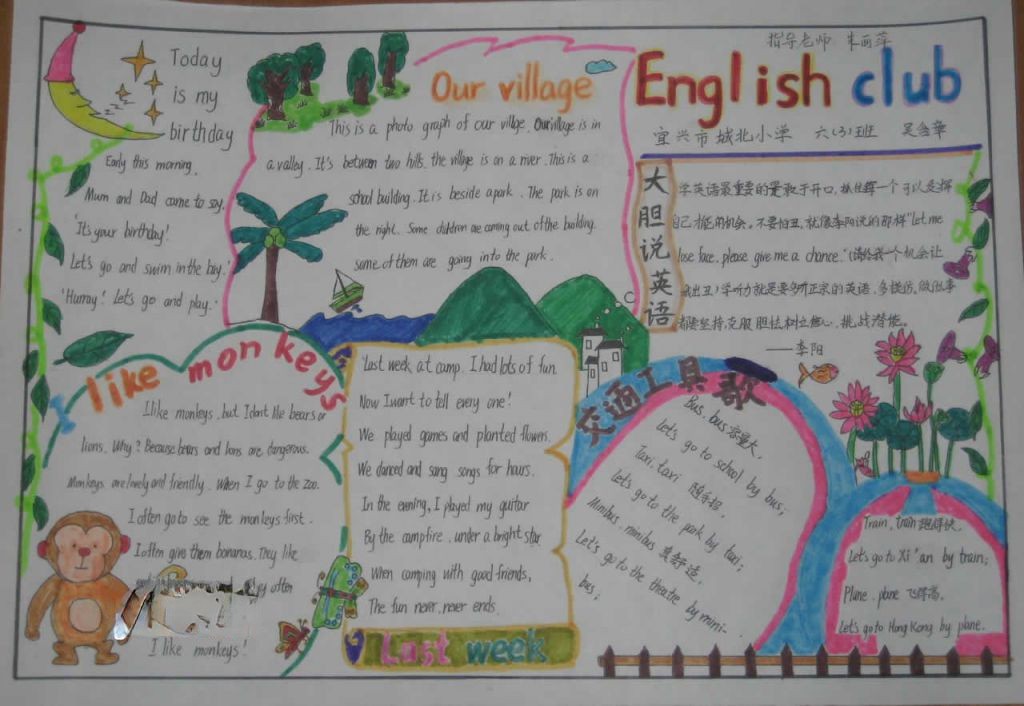 指导老师 朱丽萍
English club
宜兴市城北小学 六(3)班
Today
is my
birthday
Early this morning,
Mum and Dad come to say,
'It's your birthday!
Let's go and swim in the bay.'
'Hurray! Let's go and play.'
Our village
This is a photo graph of our village. Our village is in
a valley. It's between two hills. the village is on a river. This is a
school building. It is beside a park. The park is on
the right. Some children are coming out of the building.
some of them are going into the park.
大胆说英语
学英语最重要的是敢于开口,抓住每一个可以发挥
自己才能的机会。不要怕丑,就像李阳说的那样"Let me
lose face, please give me a chance."(请给我一个机会让
我出丑)学听力就是要多听正宗的英语,多模仿。做任何事
都要坚持,克服胆怯,树立信心,挑战潜能。
——李阳
I like monkeys
I like monkeys, but I don't like bears or
lions. Why? Because bears and lions are dangerous.
Monkeys are lovely and friendly. When I go to the zoo.
I often go to see the monkeys first.
I often give them bananas. They like
often
I like monkeys!
'Last week at camp. I had lots of fun.
Now I want to tell every one!
We played games and planted flowers.
We danced and sang songs for hours.
In the evening, I played my guitar
By the campfire, under a bright star
When camping with good friends,
The fun never, never ends.
Last week
交通工具歌
Bus, bus 容量大,
Let's go to school by bus;
Taxi, taxi 随手招,
Let's go to the park by taxi;
Minibus, minibus 真舒适,
Let's go to the theatre by mini-
bus;
Train, train 跑得快,
Let's go to Xi'an by train;
Plane, plane 飞得高,
Let's go to Hong Kong by plane.